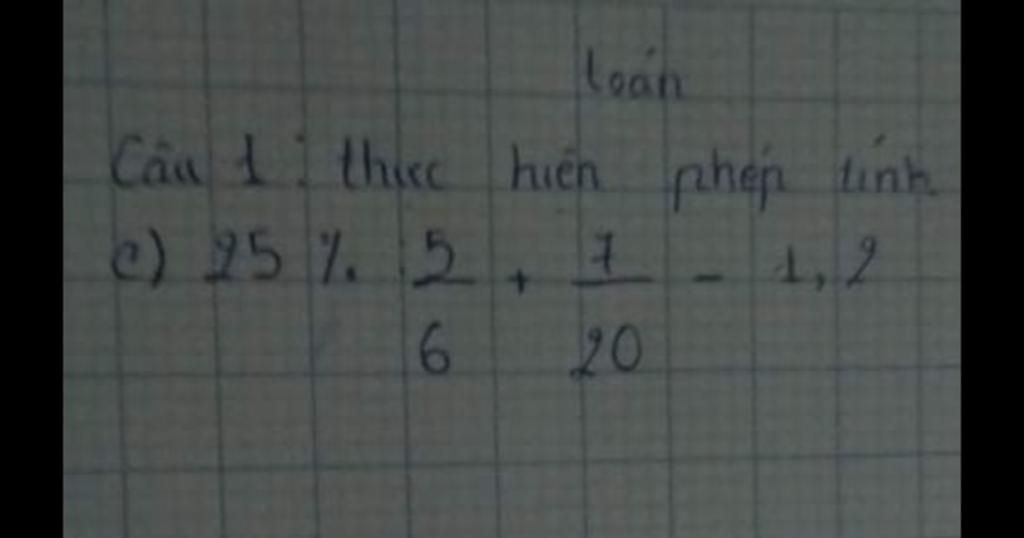 toán
Câu 1: thực hiện phép tính
c) 25 %. 5/6 + 7/20 - 1,2